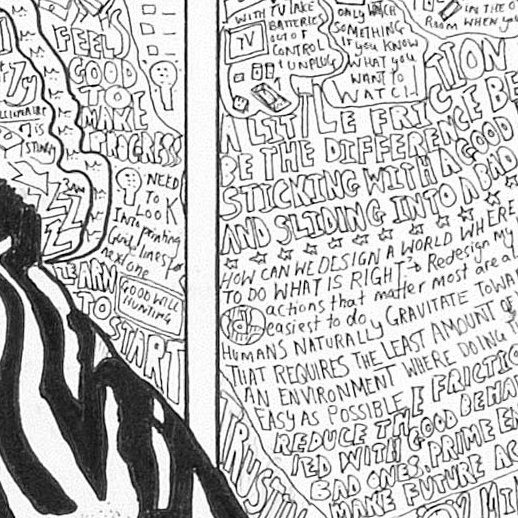 IT'S
FEELS
GOOD
TO
MAKE
PROGRESS
7 is
STUPID
3AM
ZZ
Z
NEED
TO
LOOK
Into printing
Guidlines for
next one
LEARN
TO
START
GOOD WILL
HUNTING
WITH TV TAKE
BATTERIES
OUT OF
CONTROL
+ UNPLUG
TV
ONLY WATCH
SOMETHING
IF YOU KNOW
WHAT YOU
WANT TO
WATCH
IN THE O
ROOM WHEN YOU
A LITTLE FRICTION
CE BE
BE THE DIFFERENCE BE
STICKING WITH A GOOD
AND SLIDING INTO A BAD
HOW CAN WE DESIGN A WORLD WHERE
TO DO WHAT IS RIGHT → Redesign my
actions that matter most are al
easiest to do
GRAVITATE TOWA
HUMANS NATURALLY
THAT REQUIRES THE LEAST AMOUNT OF
AN ENVIRONMENT WHERE DOING T
EASY AS POSSIBLE
REDUCE THE FRICTIO
TED WITH GOOD BEHA
BAD ONES. PRIME EN
MAKE FUTURE AC
TRUST
MI